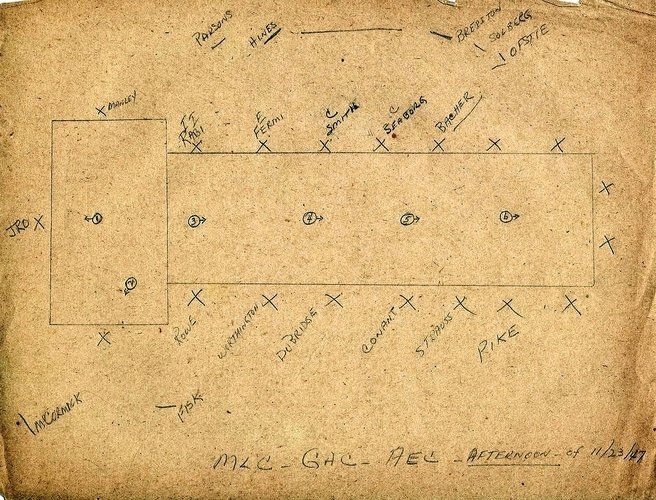 PARSONS
HINES
BRERETON
SOLBERG
OFSTIE
MANLEY
II
RABI
E
FERMI
C
SMITH
C
SEABORG
BACHER
JRO
1
3
4
5
6
2
ROWE
WORTHINGTON
DUBRIDGE
CONANT
STRAUSS
PIKE
McCORMICK
FISK
MLC - GAC - AEC - AFTERNOON - of 11/23/47